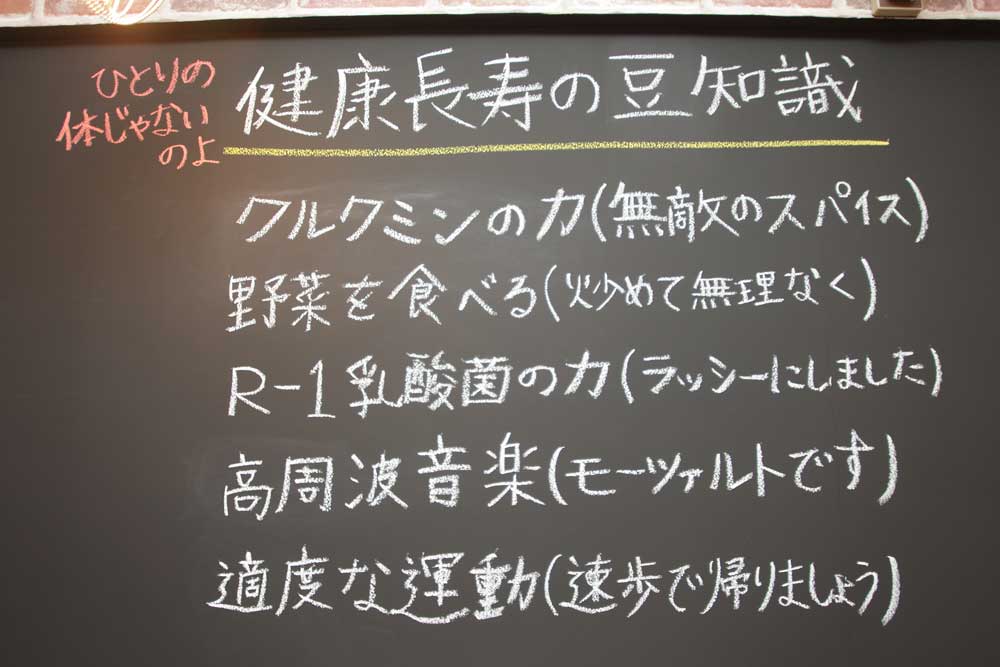 ひとりの
体じゃない
のよ
健康長寿の豆知識
クルクミンの力(無敵のスパイス)
野菜を食べる(炒めて無理なく)
R-1乳酸菌の力(ラッシーにしました)
高周波音楽(モーツァルトです)
適度な運動(速歩で帰りましょう)